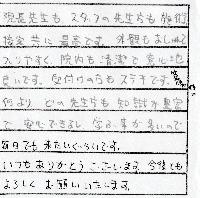 院長先生も スタッフの先生方も 技術
接客 共に 最高です。外観も おしゃれで
入りやすく、院内も 清潔で 居心地
良いです。受付けの方も ステキです。
何より、どの先生方も 知識が豊富
で 安心できるし 学ぶ事が多いので
毎日でも 来たいくらいです。
いつも ありがとう ございます。今後とも
よろしく お願い いたします。